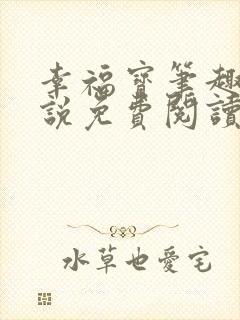 幸福寶筆趣
說免費閱讀
水草也愛宅